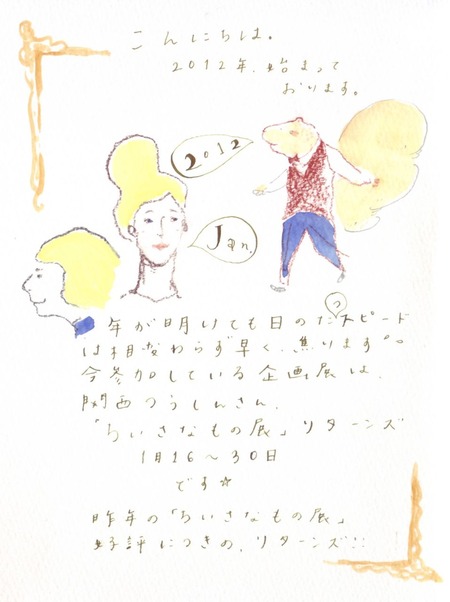 こんにちは。
2012年、始まって
おります。
2012
Jan.
年が明けても日のたつスピード
は相変わらず早く、焦ります。。
今参加している企画展は、
関西つうしんさん、
「ちいさなもの展」リターンズ
1月16〜30日
です☆
昨年の「ちいさなもの展」
好評につきの、リターンズ!!